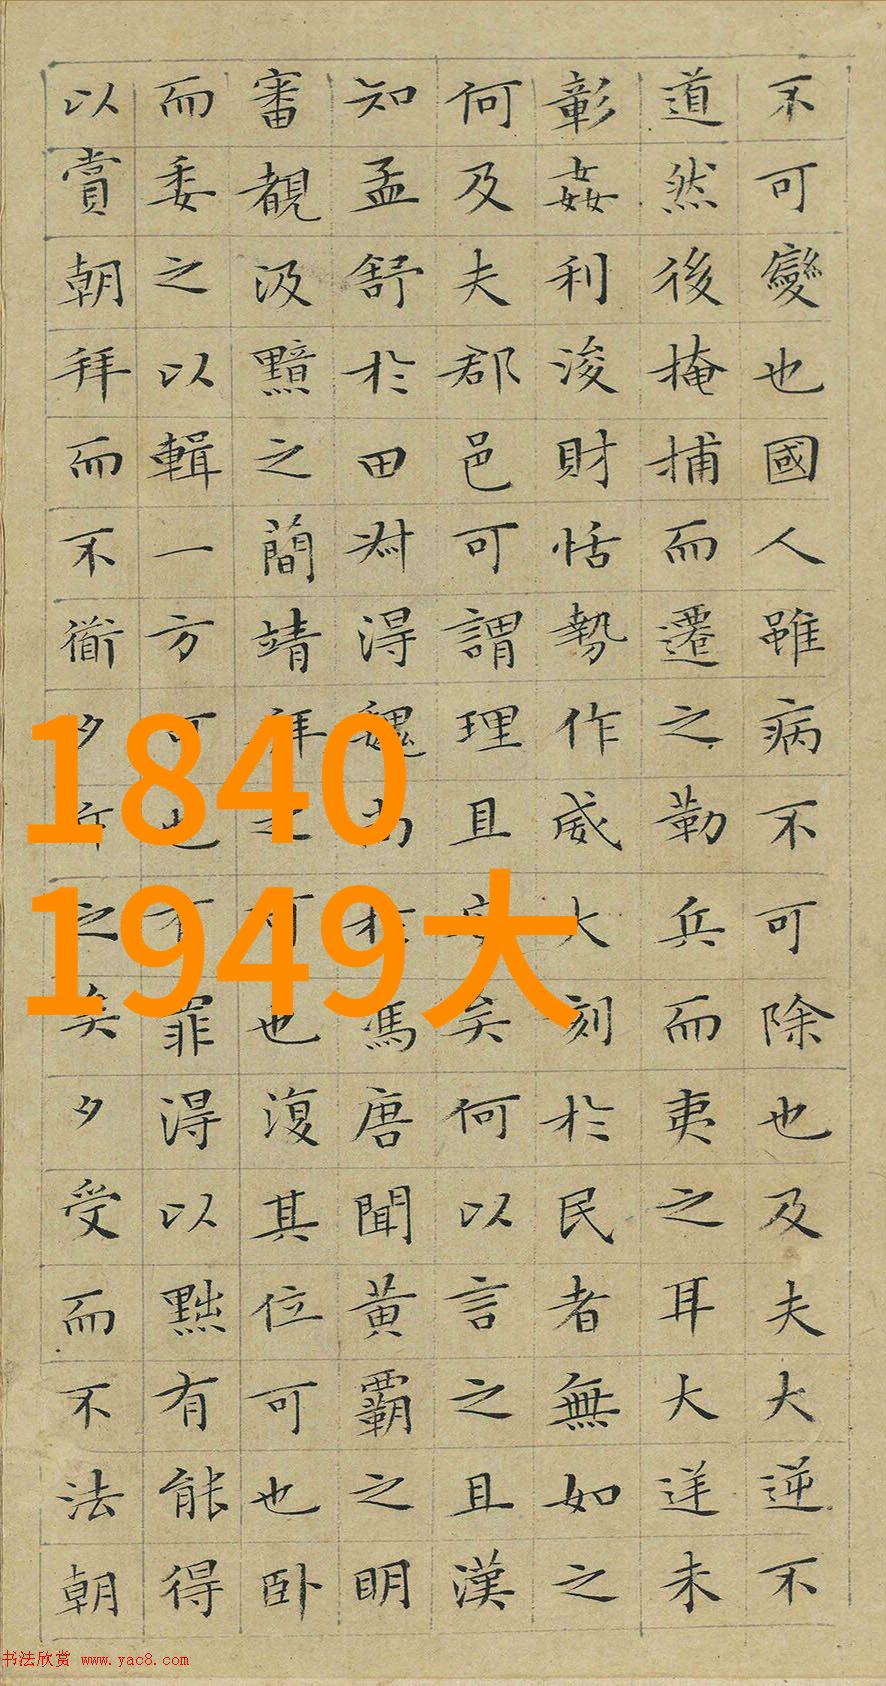 不可變也國人雖病不可除也及夫大逆不
道然後掩捕而遷之勒兵而夷之耳大逆未
彰姦利浚財恬勢作威大刻於民者無如之
何及夫郡邑可謂理且安矣何以言之且漢
知孟舒於田叔得魏尚於馮唐聞黃霸之明
審覩汲黯之簡靖拜之可也復其位可也卧
而委之以輯一方可也有罪得以黜有能得
以賞朝拜而不衜夕斥之矣夕受而不法朝
1840
1949大
书法欣赏 www.yac8.com